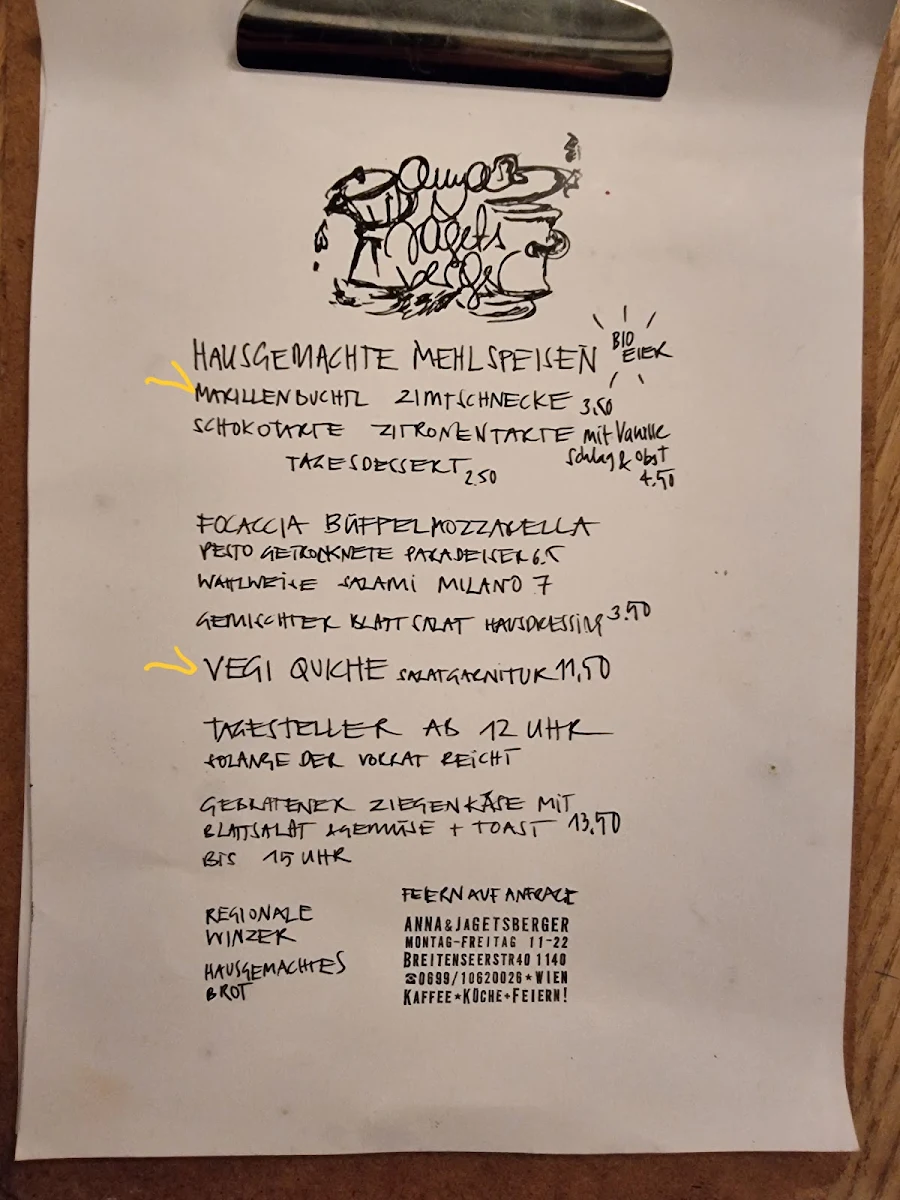 anna & Jagets berger
HAUSGEMACHTE MEHLSPEISEN
BIO
EIER
MARILLENBUCHTL ZIMTSCHNECKE 3,50
SCHOKOTARTE ZITRONENTARTE mit Vanille
Schlag & Obst
TAGESDESSERT 2.50
4.50
FOCACCIA BÜFFELMOZZARELLA
PESTO GETROCKNETE PARADEISER 6.5
WAHLWEISE SALAMI MILANO 7
GEMISCHTER BLATTSALAT HAUSDRESSING 3.50
VEGI QUICHE SALATGARNITUR 11,50
TAGESTELLER AB 12 UHR
SOLANGE DER VORRAT REICHT
GEBRATENER ZIEGENKÄSE MIT
BLATTSALAT &GEMÜSE + TOAST 13,50
BIS 15 UHR
FEIERN AUF ANFRAGE
REGIONALE
WINZER
HAUSGEMACHTES
BROT
ANNA&JAGETSBERGER
MONTAG-FREITAG 11-22
BREITENSEERSTR40 1140
☎0699/10620026★WIEN
KAFFEE★KÜCHE+FEIERN!